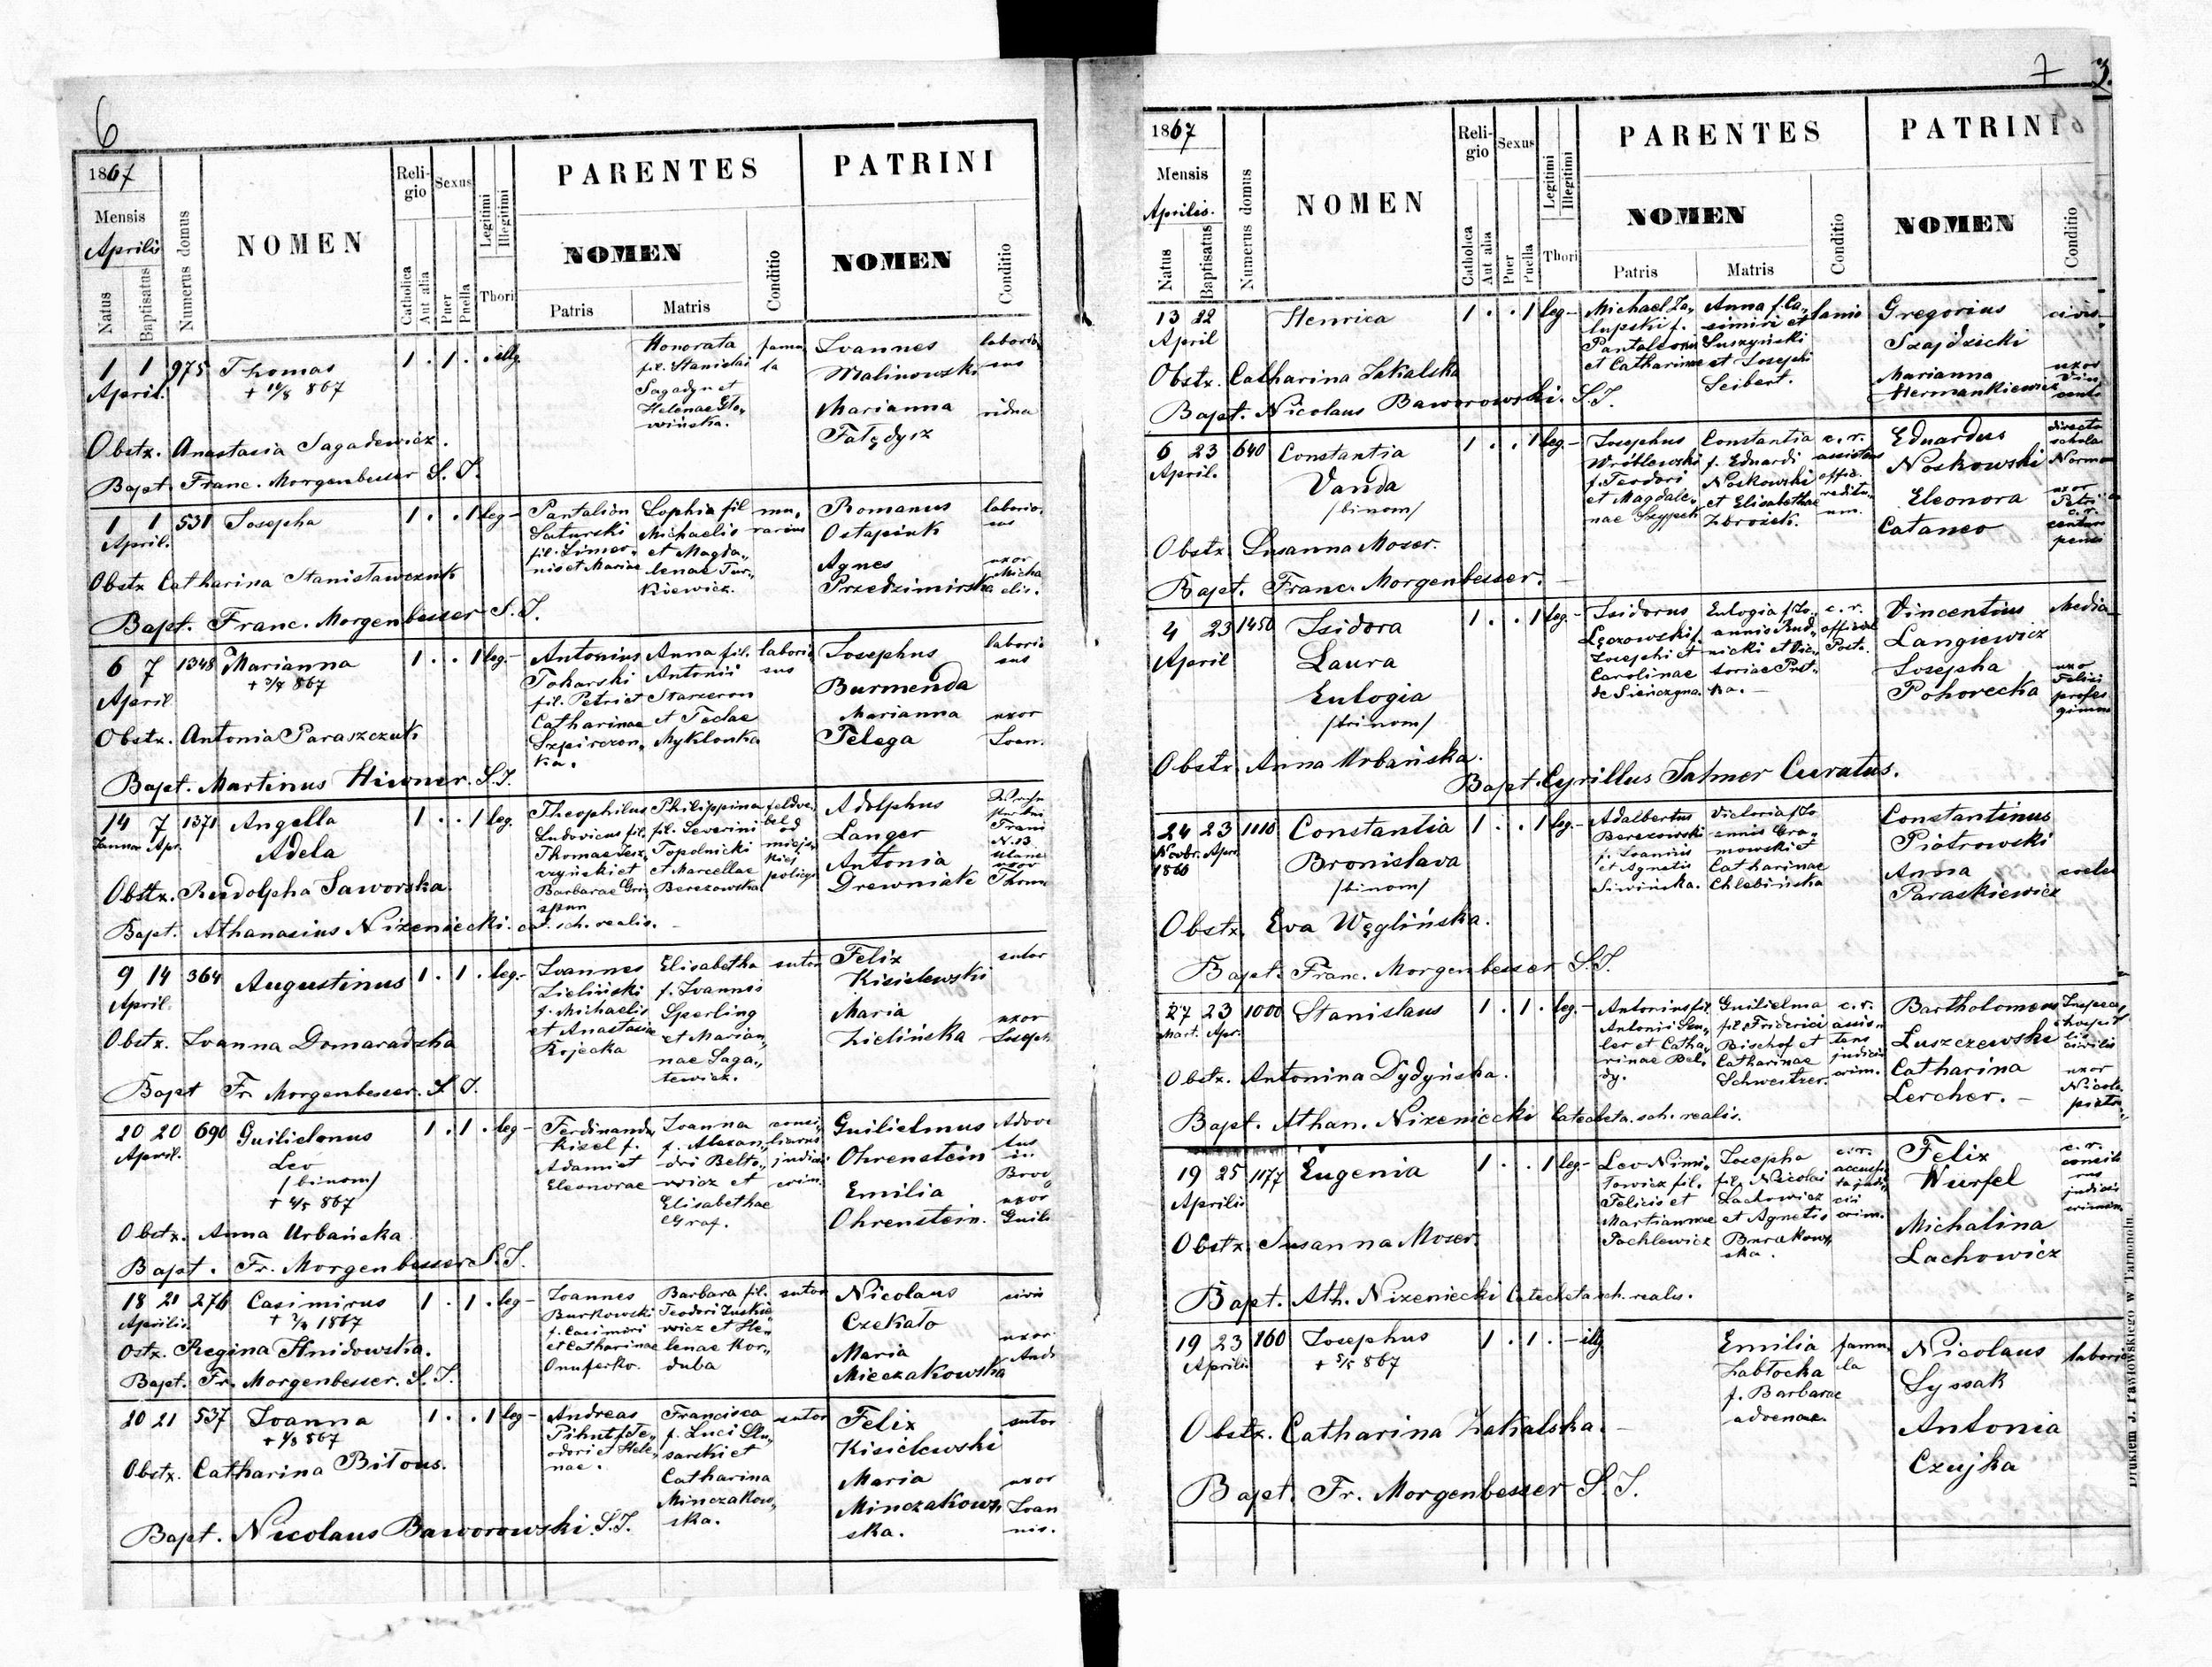 6
1867
Mensis
Aprilis
Natus
Baptisatus
Numerus domus
NOMEN
Religio
Catholica
Aut alia
Sexus
Puer
Puella
Legitimi
Illegitimi
Thori
PARENTES
NOMEN
Patris
Matris
Conditio
PATRINI
NOMEN
Conditio
1 1 975 Thomas 1 . 1 . . illg.
April.
Honorata
fil. Stanislai
Sagadyn et
Helenae Gło-
wińska.
famu-
la
Joannes
Malinowski
Marianna
Fałędysz
laborio
sus
vidua
Obstx. Anastasia Sagadewicz.
Bapt. Franc. Morgenbesser S.J.
1 1 531 Josepha 1 . . 1 leg-
April.
Pantalion
Saturski
fil. Simeo-
nis et Mariae
Sophia fil
Michaelis
et Magda-
lenae Tur-
kiewicz.
mu-
rarius
Romanus
Ostapiuk
Agnes
Przedzimirska
laborio
sus
uxor
Micha
elis.
Obstx Catharina Stanisławczuk
Bapt. Franc. Morgenbesser S.J.
6 7 1348 Marianna 1 . . 1 leg.-
April
Antonius
Tokarski
fil. Petri et
Catharinae
Szpirczon-
ka.
Anna fil.
Antonii
Starzeron
et Teclae
Myklonka
laborio
sus
Josephus
Burmenda
Marianna
Telega
laborio
sus
uxor
Joan.
Obstx. Antonia Paraszczuk
Bapt. Martinus Hiwner. S.J.
14 7 1371 Angella 1 . . 1 leg.
Adela
Theophilus
Ludovicus fil.
Thomae
et
Barbarae
Philippina
fil. Severini
Topolnicki
et Marcellae
Berezowska
feldwe-
bel
od
miejs-
kiej
policyi
Adolphus
Langer
Antonia
Drewniak
uxor
Obstx. Rudolpha Jaworska.
Bapt. Athanasius Nizeniecki. cat. sch. realis.
9 14 364 Augustinus 1 . 1 . leg.-
April.
Joannes
Zieliński
f. Michaelis
et Anastasia
Kojecka
Elisabetha
f. Joannis
Sperling
et Marian-
nae Saga-
tewicz.
sutor
Felix
Kisielewski
Maria
Zielińska
sutor
uxor
Joseph
Obstx. Joanna Domaradzka
Bapt Fr. Morgenbesser. S.J.
20 20 690 Guilielmus 1 . 1 . leg-
April.
Leo
/binom/
+ 4/5 867
Ferdinandus
Kisel f.
Adami et
Eleonorae
Joanna
f. Alexan-
dri Belto-
wicz et
Elisabethae
Graf.
consi-
liarius
judicii
crim.
Guilielmus
Ohrenstein
Emilia
Ohrenstein.
Advoca
tus
in
Brod
uxor
Guili
Obstx. Anna Urbańska
Bapt. Fr. Morgenbesser S.J.
18 21 276 Casimirus 1 . 1 . leg-
Aprilis.
Joannes
Burkowski
f. Casimiri
et Catharinae
Onuferko.
Barbara fil.
Teodori Zuskie
wicz et He-
lenae Kor-
duba
sutor
Nicolaus
Czekało
Maria
Mieczakowska
civis
uxor
Andr
Ostx. Regina Hnidowska.
Bapt. Fr. Morgenbesser. S.J.
20 21 537 Joanna 1 . . 1 leg-
Andreas
Pihut f. Te-
odori et Hele-
nae.
Francisca
f. Luci
et
Catharina
Minczakow-
ska.
sutor
Felix
Kisielewski
Maria
Minczakow-
ska.
sutor
uxor
Joan
nis.
Obstx. Catharina Bitous.
Bapt. Nicolaus Baworowski. S.J.
7
1867
Mensis
Aprilis.
Natus
Baptisatus
Numerus domus
NOMEN
Religio
Catholica
Aut alia
Sexus
Puer
Puella
Legitimi
Illegitimi
Thori
PARENTES
NOMEN
Patris
Matris
Conditio
PATRINI
NOMEN
Conditio
13 22 Henrica 1 . . 1 leg-
April
Michael Za-
lupski f.
Pantaleonis
et Catharinae
Anna f. Ca-
simiri et
Suszyński
et Josephi
Seibert.
lanio
Gregorius
Szajdzicki
Marianna
Hermankiewicz
civis
uxor
Vin
centi
Obstx. Catharina Zakalska
Bapt. Nicolaus Baworowski. S.J.
6 23 640 Constantia 1 . . 1 leg-
April.
Vanda
/binom/
Josephus
Wróblewski
f. Teodori
et Magdale-
nae
Constantia
f. Eduardi
Noskowski
et Elisabethae
Zbrożek.
c. r.
assistens
offic.
redituum.
Eduardus
Noskowski
Eleonora
Cataneo
director
schola
Norma
uxor
Petri
c. r.
centuri
pensi
Obstx. Susanna Moser.
Bapt. Franc. Morgenbesser.
4 23 1450 Isidora 1 . . 1 leg-
April
Laura
Eulogia
/trinom/
Isidorus
Łęczowski f.
Josephi et
Carolinae
de Sienczyna.
Eulogia f. Jo-
annis Rud-
nicki et Vic-
toriae
c. r.
official
Posta.
Vincentius
Langiewicz
Josepha
Pohorecka
Media
uxor
Felici
profes
gimn
Obstx. Anna Urbańska.
Bapt. Cyrillus Jahner Curatus.
24 23 1110 Constantia 1 . . 1 leg-
Novbr. Apr.
1866
Bronislava
/binom/
Adalbertus
Berezowski
f. Joannis
et Agnetis
Siwińska.
Victoria f. Jo
annis Gro-
mowski et
Catharinae
Chlebińska
Constantinus
Piotrowski
Anna
Paraskiewicz
coelebs
Obstx. Eva Węglińska.
Bapt. Franc. Morgenbesser S.J.
27 23 1000 Stanislaus 1 . 1 . leg-
Mart. Apr.
Antonius fil.
Antonii
et Catha-
rinae Bel-
dy.
Guilielma
fil. Friderici
Bischof et
Catharinae
Schweitzer.
c. r.
assis-
tens
judicii
crim.
Bartholomeus
Łuszczewski
Catharina
Lercher.
civilis
uxor
Nicola
Obstx. Antonina Dydyńska.
Bapt. Athan. Nizeniecki Catecheta. sch. realis.
19 25 1177 Eugenia 1 . . 1 leg-
Aprilis
Leo Nimi-
towicz fil.
Felicis et
Martiannae
Pachlewicz
Josepha
fil. Nicolai
Lachowicz
et Agnetis
Burakow-
ska.
c. r.
accessis
ta judi-
cii
crim.
Felix
Wurfel
Michalina
Lachowicz
c. r.
consili
rus
judicii
crimin.
Obstx. Susanna Moser.
Bapt. Ath. Nizeniecki Catecheta sch. realis.
19 23 160 Josephus 1 . 1 . - illg
Aprilis
+ 5/5 867
Emilia
Zabłocka
f. Barbarae
advenae.
famu-
la
Nicolaus
Lyssak
Antonia
Czujka
laborio
Obstx. Catharina Zakalska.
Bapt. Fr. Morgenbesser S.J.
Drukiem J. Pawłowskiego w Tarnopolu